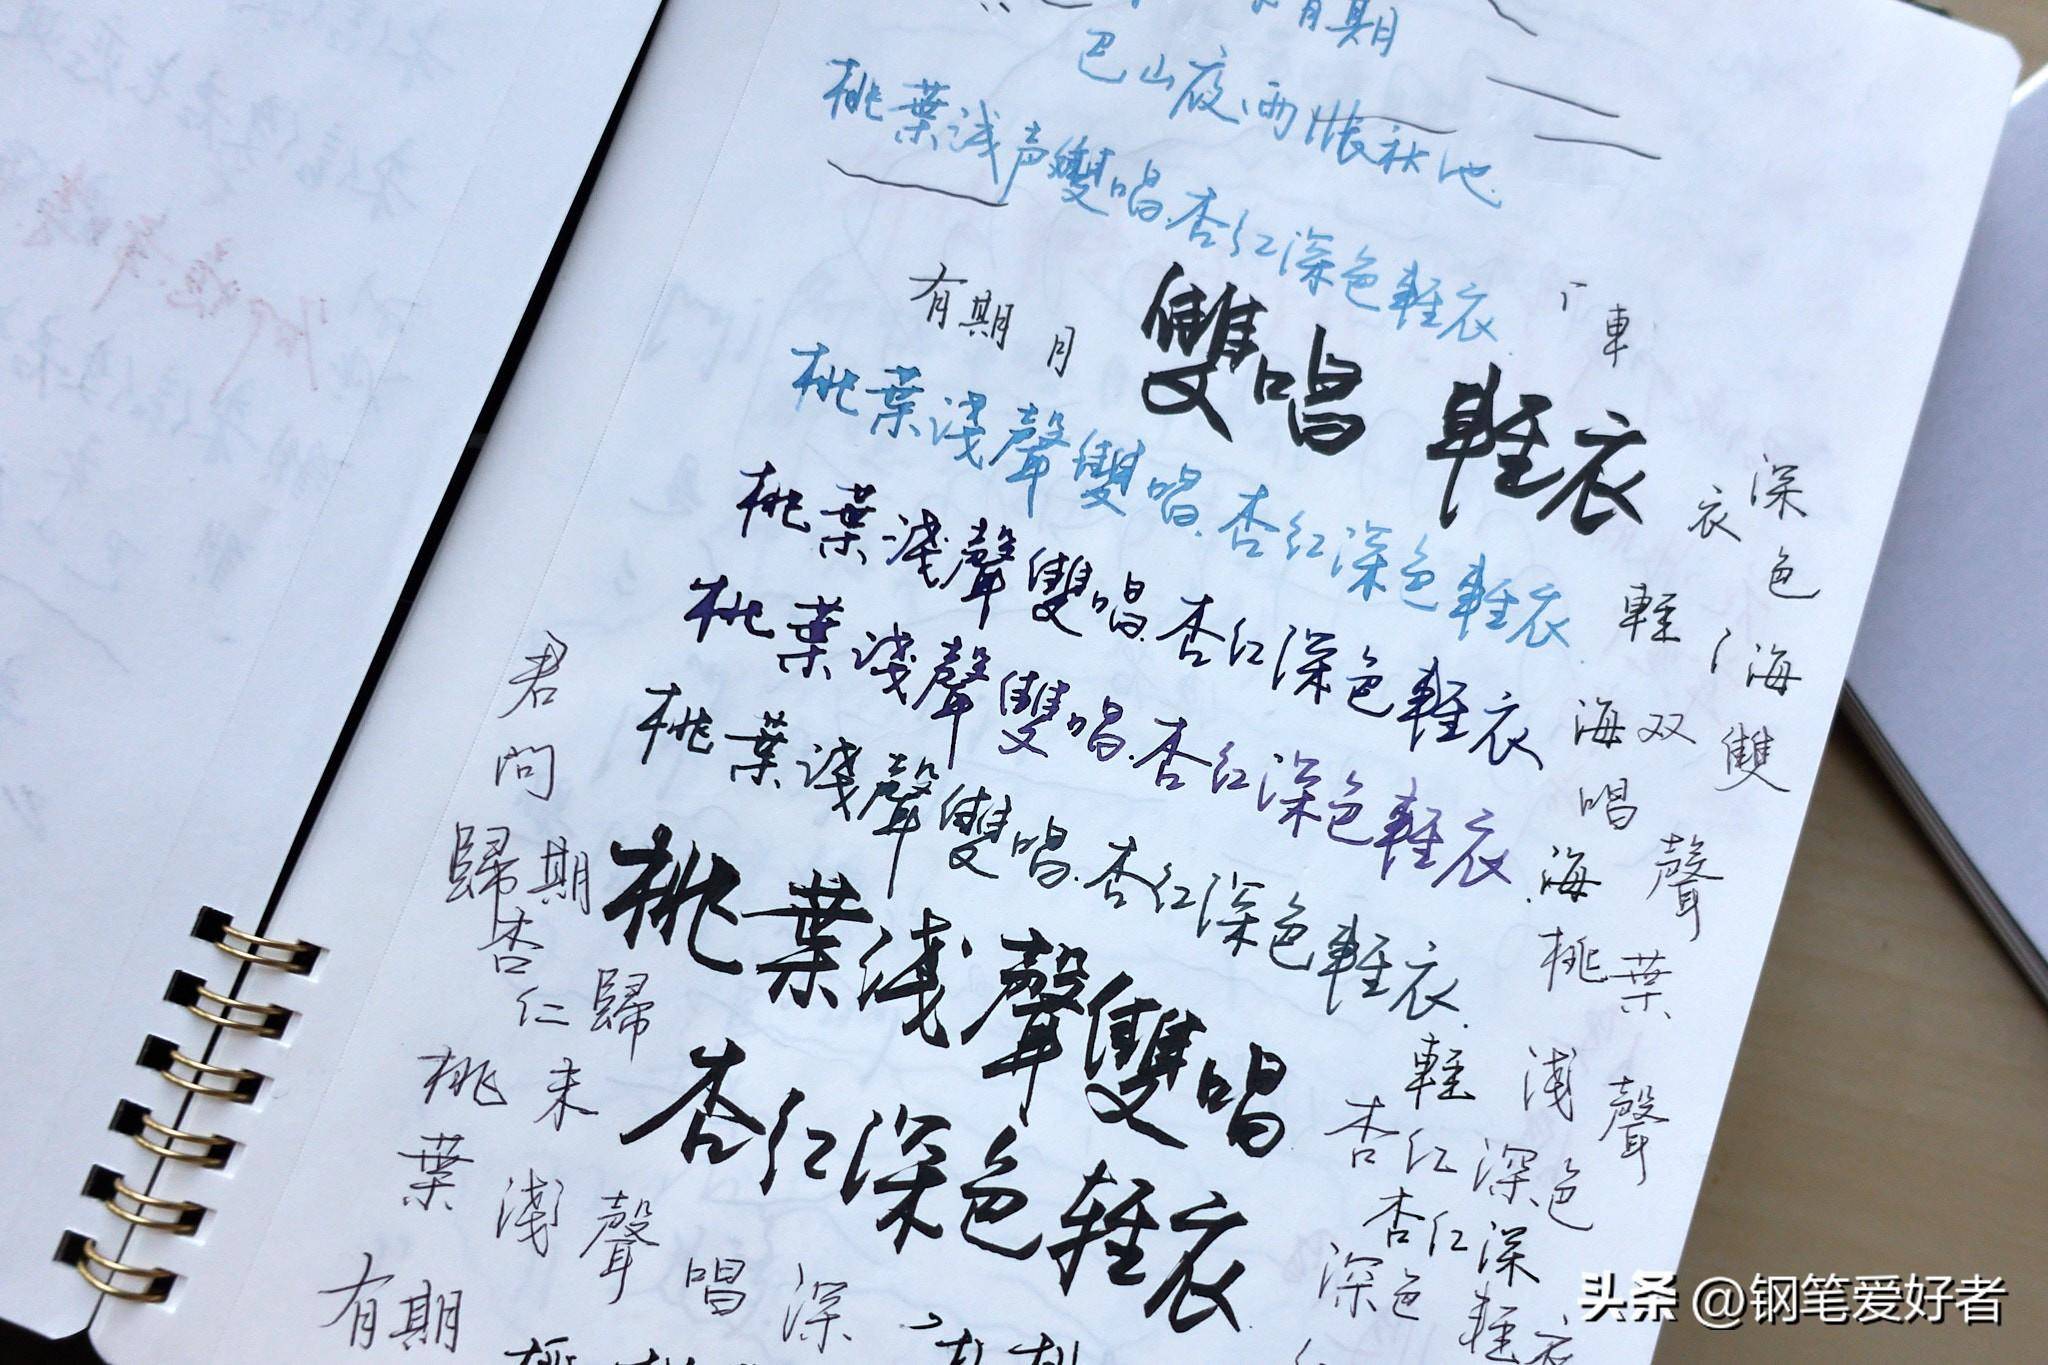 有期
巴山夜雨漲秋池
桃葉淺声雙唱.杏紅深色輕衣
有期 月
雙唱 輕衣
車
桃葉淺聲雙唱.杏紅深色輕衣.
桃葉淺聲雙唱.杏紅深色輕衣
桃葉淺聲雙唱.杏紅深色輕衣.
桃葉淺聲雙唱.杏紅深色輕衣.
桃葉淺聲雙唱
杏紅深色輕衣
深
衣
色
輕
海
海双
雙
唱
聲
海
桃葉
輕
淺
聲
杏紅深色
杏仁深
深色
輕衣
君
問
歸期
杏
仁
歸
桃
未
葉
淺聲唱深
有期
头条 @钢笔爱好者